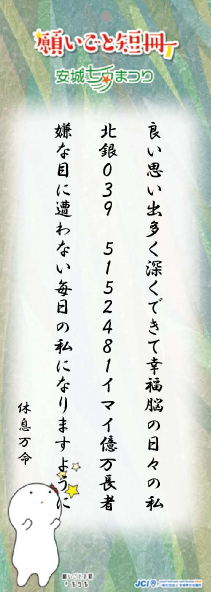 願いごと短冊
安城七夕まつり
良い思い出多く深くできて幸福脳の日々の私
北銀039 5152481イマイ億万長者
嫌な目に遭わない毎日の私になりますように
休息万命
JCI